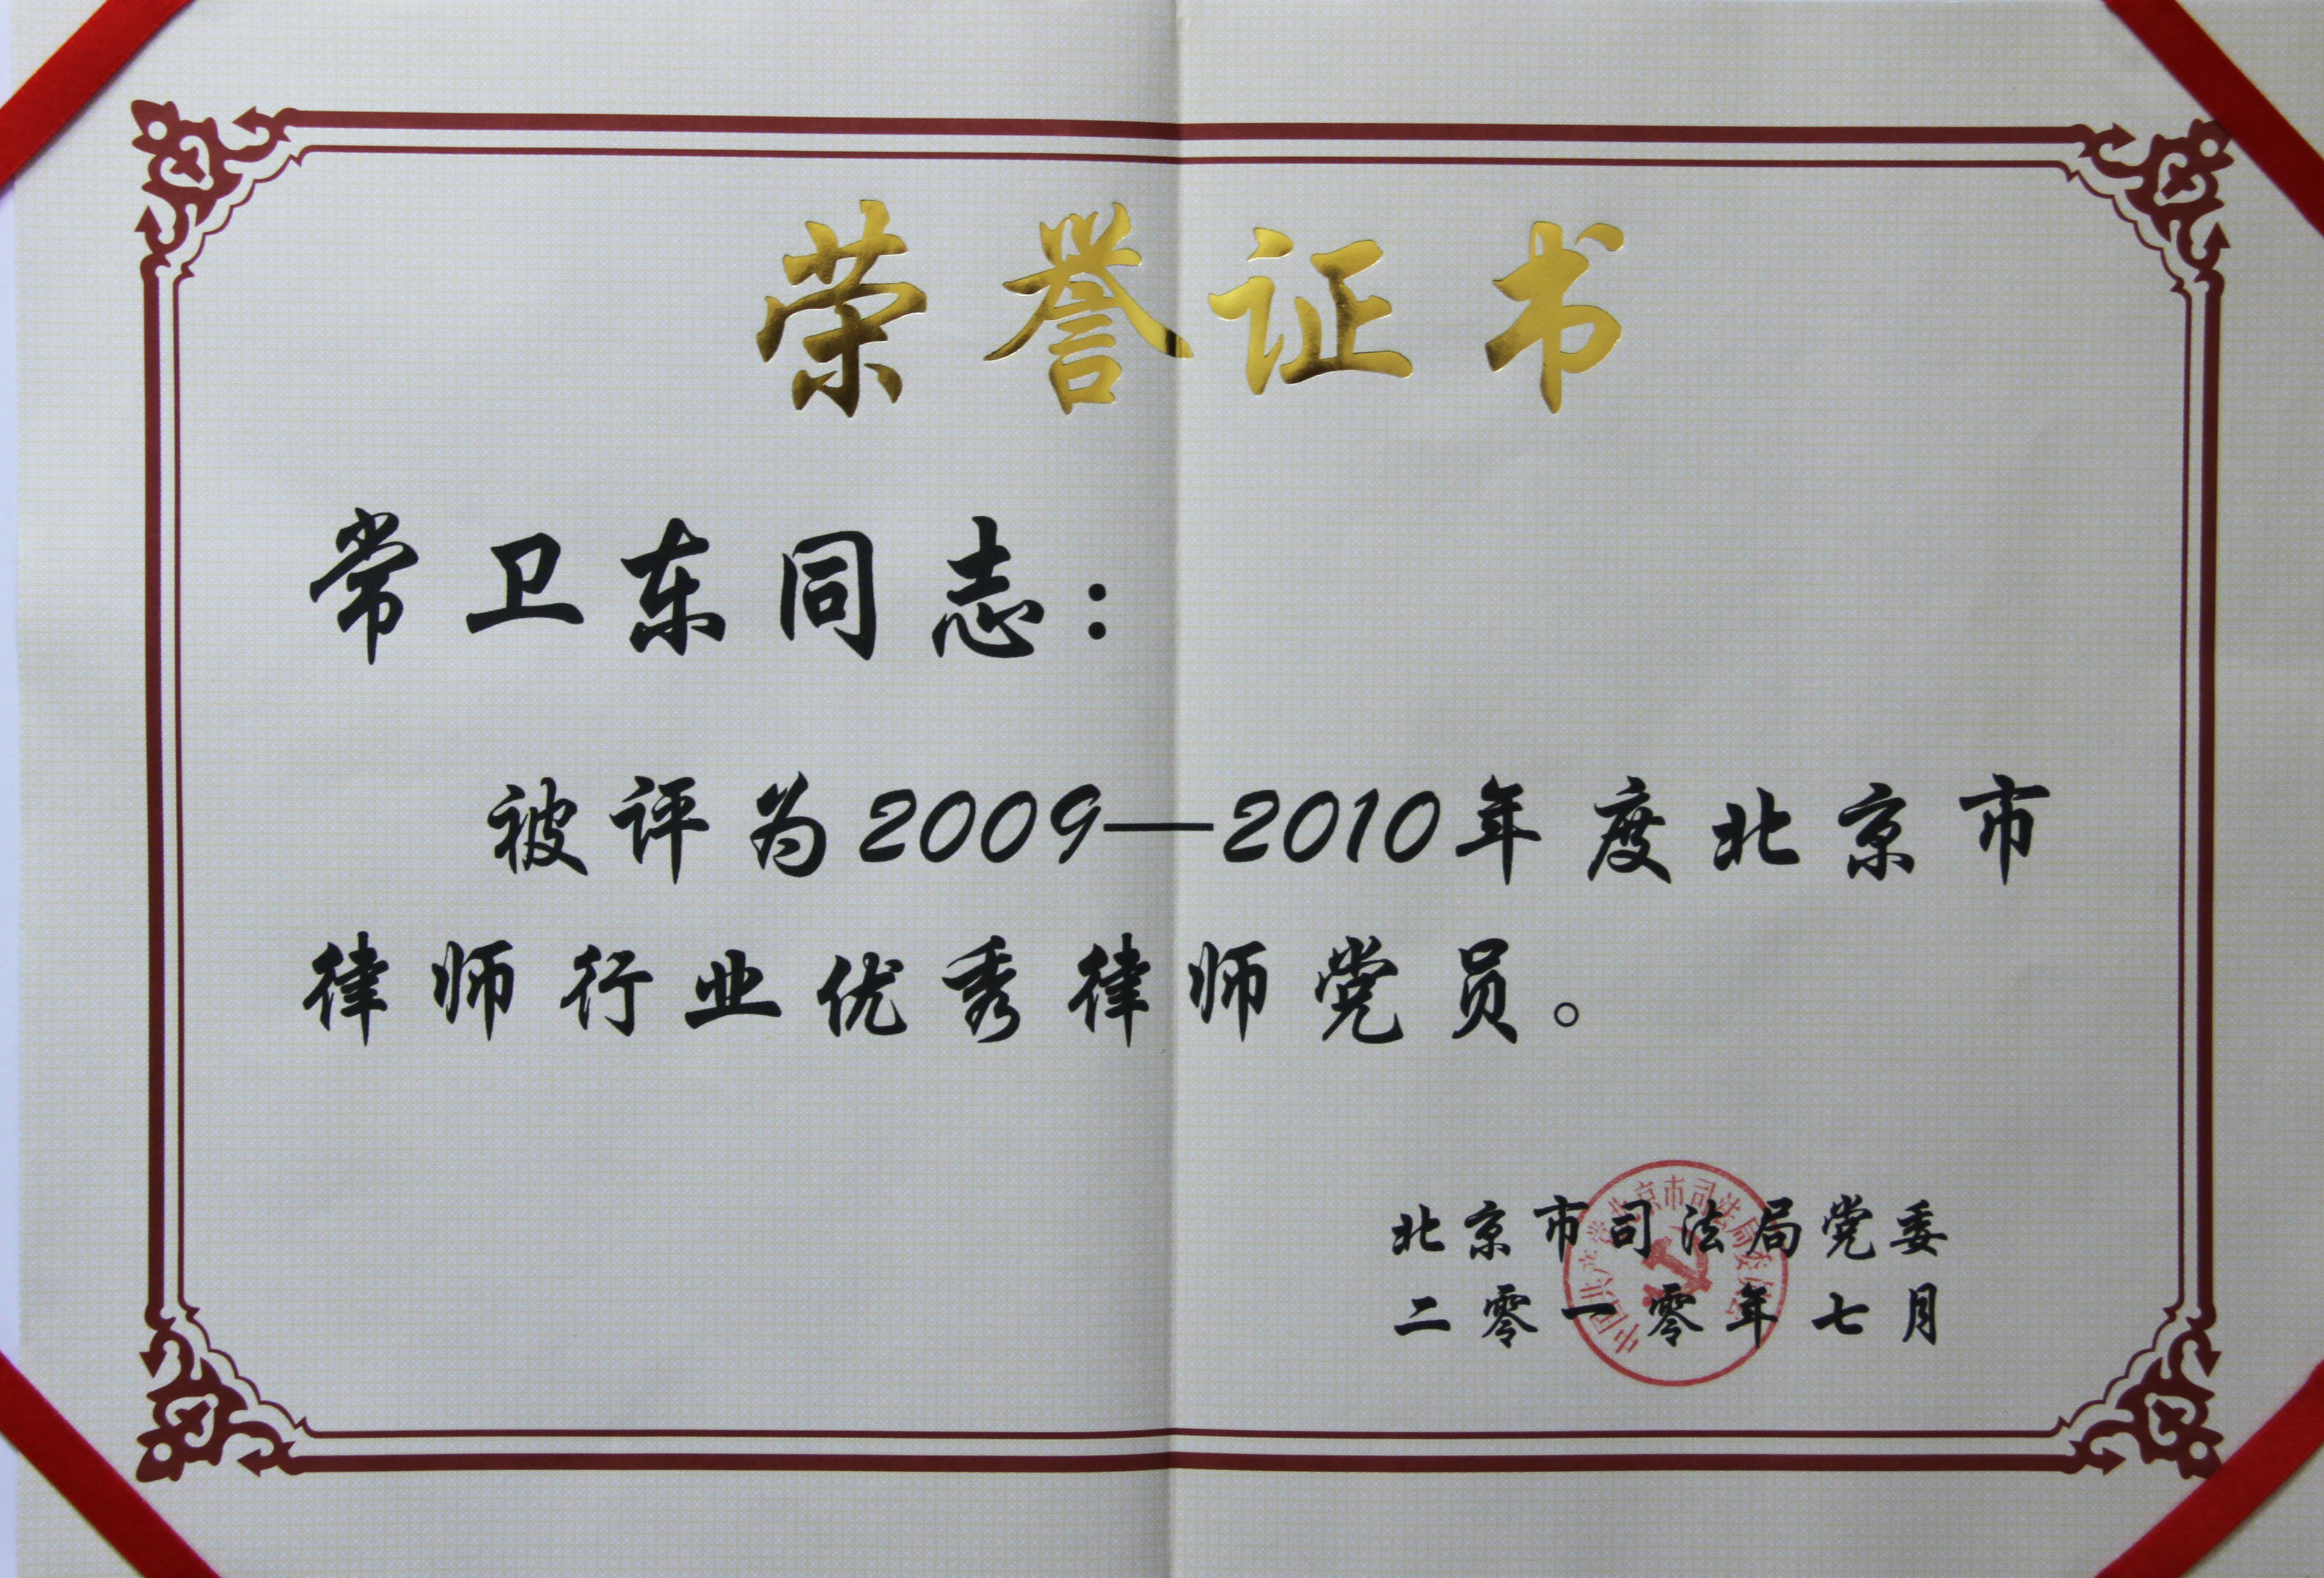 荣誉证书
常卫东同志：
被评为2009—2010年度北京市
律师行业优秀律师党员。
北京市司法局党委
二零一零年七月
中国共产党北京市司法局委员会